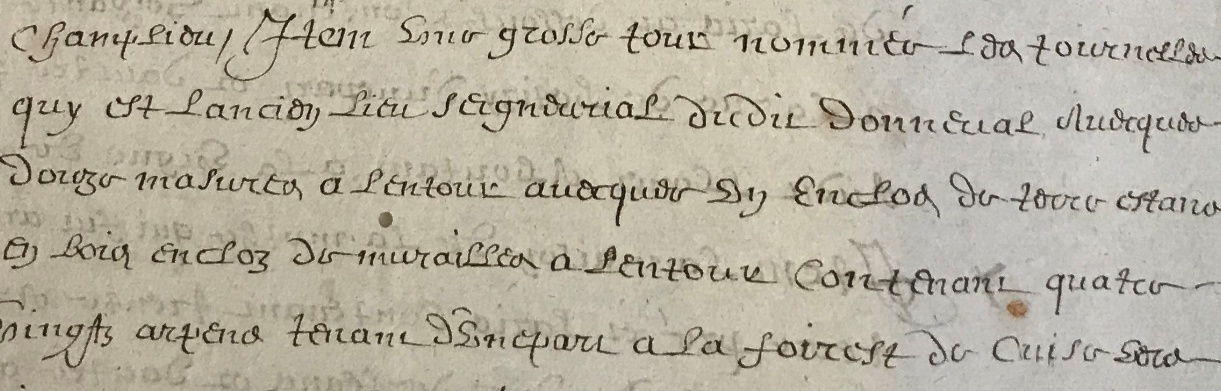 Champlieu, Item une grosse tour nommée la tournelle
quy est lancien lieu seigneurial dudit Donneual Auecques
douze masures a lentour auecques un Enclos de terre estant
en bois encloz de murailles a lentour Contenant quatre
vingts arpens tenant d'une part a la foirest de Cuise